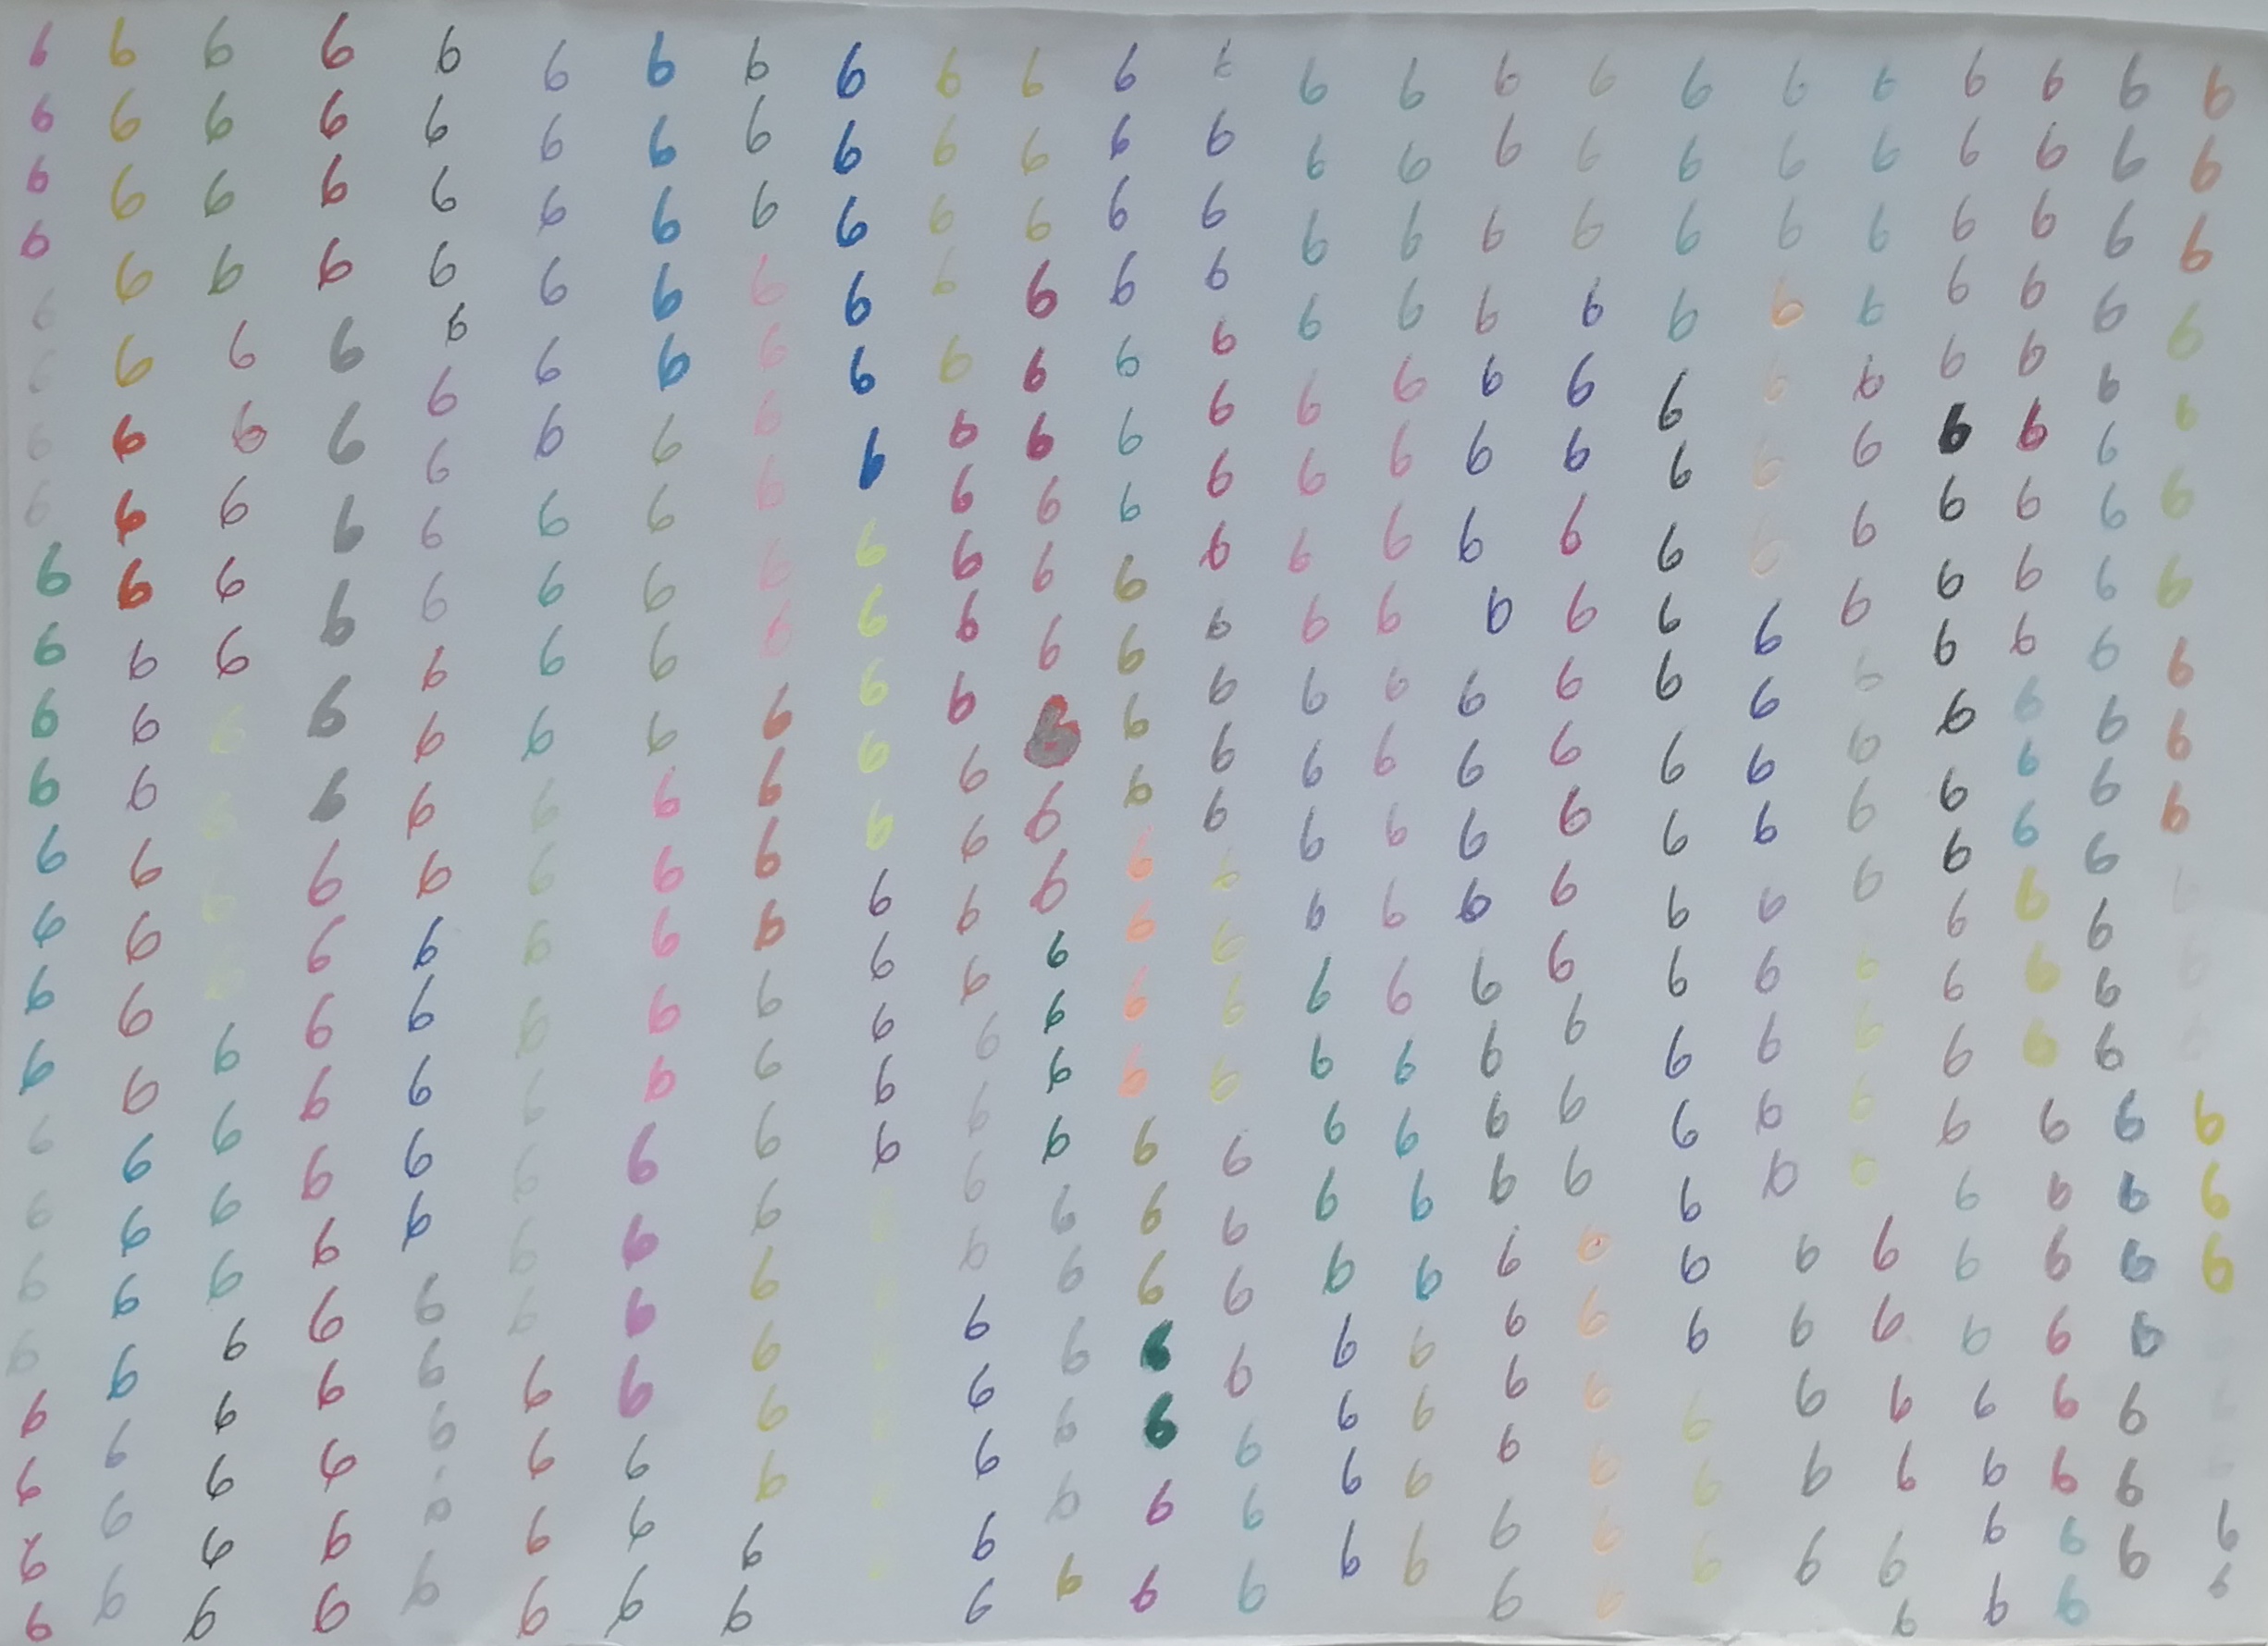 6 6 6 6 6 6 6 6 6 6 6 6 6 6 6 6 6 6 6 6 6 6 6 6
6 6 6 6 6 6 6 6 6 6 6 6 6 6 6 6 6 6 6 6 6 6 6 6
6 6 6 6 6 6 6 6 6 6 6 6 6 6 6 6 6 6 6 6 6 6 6 6
6 6 6 6 6 6 6 6 6 6 6 6 6 6 6 6 6 6 6 6 6 6 6 6
6 6 6 6 6 6 6 6 6 6 6 6 6 6 6 6 6 6 6 6 6 6 6 6
6 6 6 6 6 6 6 6 6 6 6 6 6 6 6 6 6 6 6 6 6 6 6 6
6 6 6 6 6 6 6 6 6 6 6 6 6 6 6 6 6 6 6 6 6 6 6 6
6 6 6 6 6 6 6 6 6 6 6 6 6 6 6 6 6 6 6 6 6 6 6 6
6 6 6 6 6 6 6 6 6 6 6 6 6 6 6 6 6 6 6 6 6 6 6 6
6 6 6 6 6 6 6 6 6 6 6 6 6 6 6 6 6 6 6 6 6 6 6 6
6 6 6 6 6 6 6 6 6 6 6 6 6 6 6 6 6 6 6 6 6 6 6 6
6 6 6 6 6 6 6 6 6 6 6 6 6 6 6 6 6 6 6 6 6 6 6 6
6 6 6 6 6 6 6 6 6 6 6 6 6 6 6 6 6 6 6 6 6 6 6 6
6 6 6 6 6 6 6 6 6 6 6 6 6 6 6 6 6 6 6 6 6 6 6 6
6 6 6 6 6 6 6 6 6 6 6 6 6 6 6 6 6 6 6 6 6 6 6 6
6 6 6 6 6 6 6 6 6 6 6 6 6 6 6 6 6 6 6 6 6 6 6 6
6 6 6 6 6 6 6 6 6 6 6 6 6 6 6 6 6 6 6 6 6 6 6 6
6 6 6 6 6 6 6 6 6 6 6 6 6 6 6 6 6 6 6 6 6 6 6 6
6 6 6 6 6 6 6 6 6 6 6 6 6 6 6 6 6 6 6 6 6 6 6 6
6 6 6 6 6 6 6 6 6 6 6 6 6 6 6 6 6 6 6 6 6 6 6 6
6 6 6 6 6 6 6 6 6 6 6 6 6 6 6 6 6 6 6 6 6 6 6 6
6 6 6 6 6 6 6 6 6 6 6 6 6 6 6 6 6 6 6 6 6 6